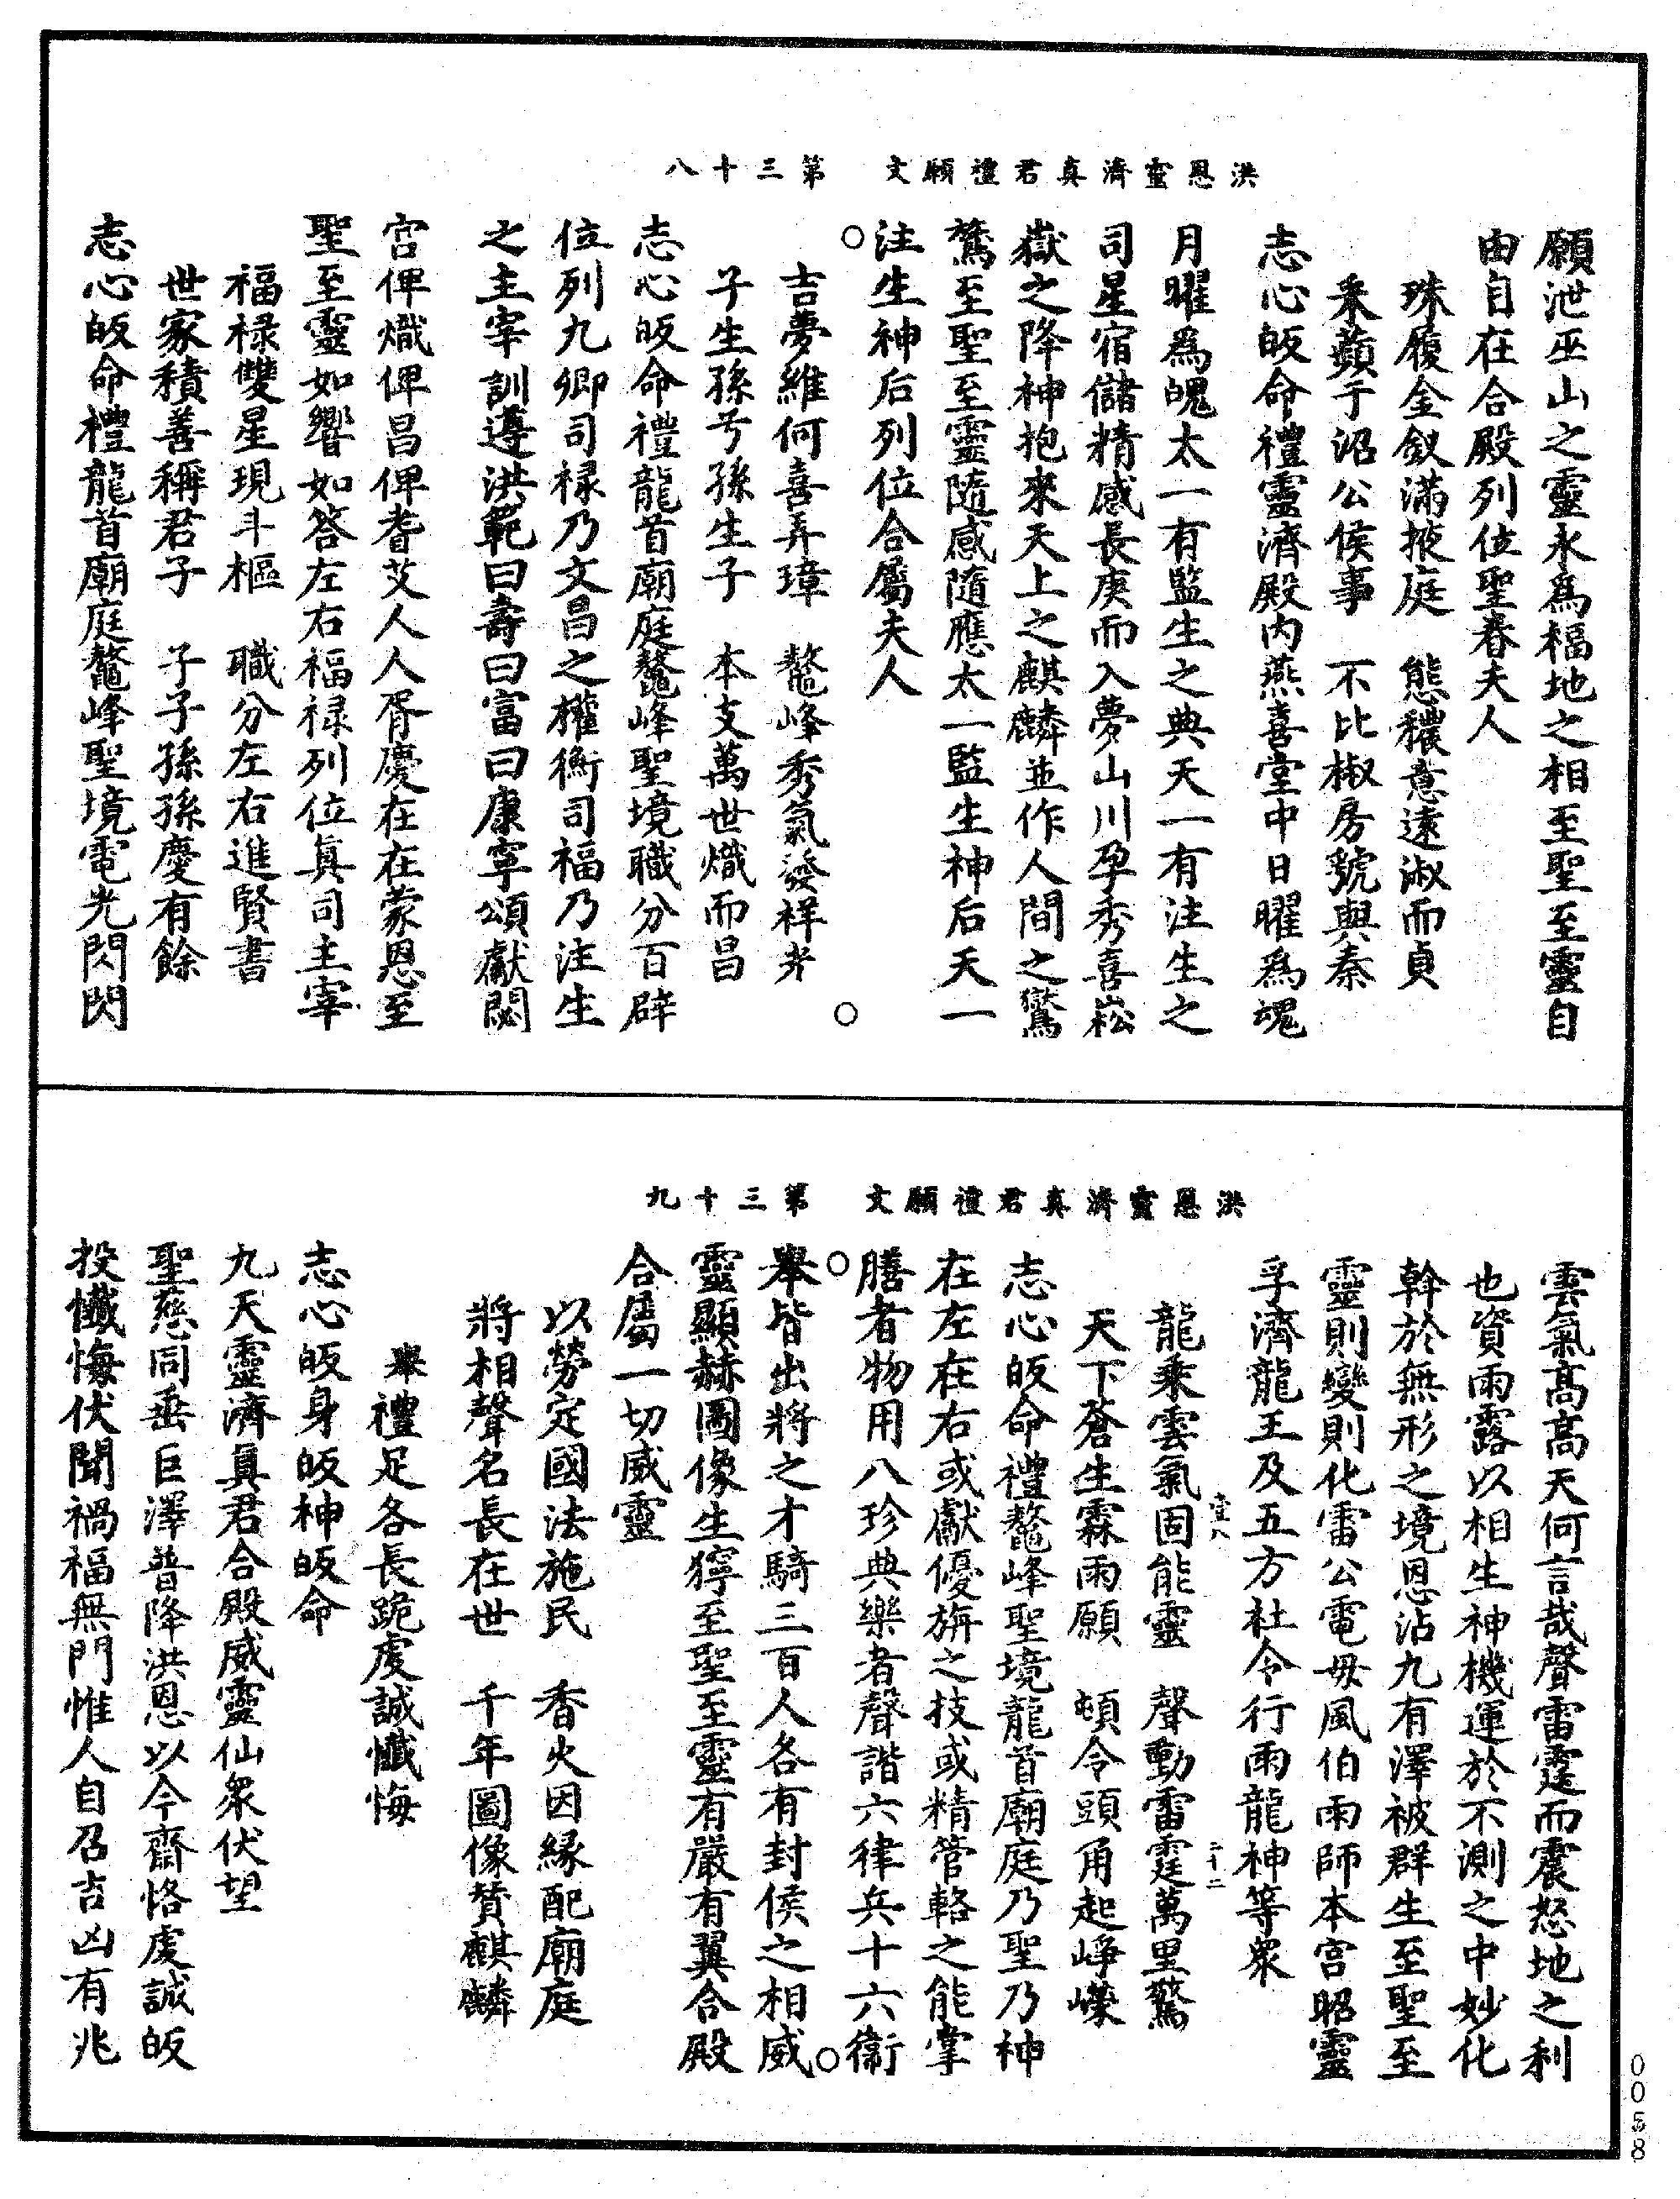 洪恩靈濟真君禮願文　第三十八
願泄巫山之靈永為福地之相至聖至靈自
由自在合殿列位聖眷夫人
珠履金釵滿掖庭　態穠意遠淑而貞
采蘋于沼公侯事　不比椒房虢與秦
志心皈命禮靈濟殿內燕喜堂中日曜為魂
月曜為魄太一有監生之典天一有注生之
司星宿儲精感長庚而入夢山川孕秀喜崧
嶽之降神抱來天上之麒麟並作人間之鸑
鷟至聖至靈隨感隨應太一監生神后天一
注生神后列位合屬夫人
吉夢維何喜弄璋　鼇峰秀氣發祥光
子生孫兮孫生子　本支萬世熾而昌
志心皈命禮龍首廟庭鼇峰聖境職分百辟
位列九卿司祿乃文昌之權衡司福乃注生
之主宰訓遵洪範曰壽曰富曰康寧頌獻閟
宮俾熾俾昌俾耆艾人人胥慶在在蒙恩至
聖至靈如響如答左右福祿列位真司主宰
福祿雙星現斗樞　職分左右進賢書
世家積善稱君子　子子孫孫慶有餘
志心皈命禮龍首廟庭鼇峰聖境電光閃閃
洪恩靈濟真君禮願文　第三十九
雲氣高高天何言哉聲雷霆而震怒地之利
也資雨露以相生神機運於不測之中妙化
斡於無形之境恩沾九有澤被群生至聖至
靈則變則化雷公電母風伯雨師本宮昭靈
孚濟龍王及五方社令行雨龍神等眾
壹八　二十二
龍乘雲氣固能靈　聲動雷霆萬里驚
天下蒼生霖雨願　頓令頭角起崢嶸
志心皈命禮鼇峰聖境龍首廟庭乃聖乃神
在左在右或獻優旃之技或精管輅之能掌
膳者物用八珍典樂者聲諧六律兵十六衛
舉皆出將之才騎三百人各有封侯之相威
靈顯赫圖像生獰至聖至靈有嚴有翼合殿
合屬一切威靈
以勞定國法施民　香火因緣配廟庭
將相聲名長在世　千年圖像贊麒麟
舉禮足各長跪虔誠懺悔
志心皈身皈神皈命
九天靈濟真君合殿威靈仙眾伏望
聖慈同垂巨澤普降洪恩以今齋恪虔誠皈
投懺悔伏聞禍福無門惟人自召吉凶有兆
0058